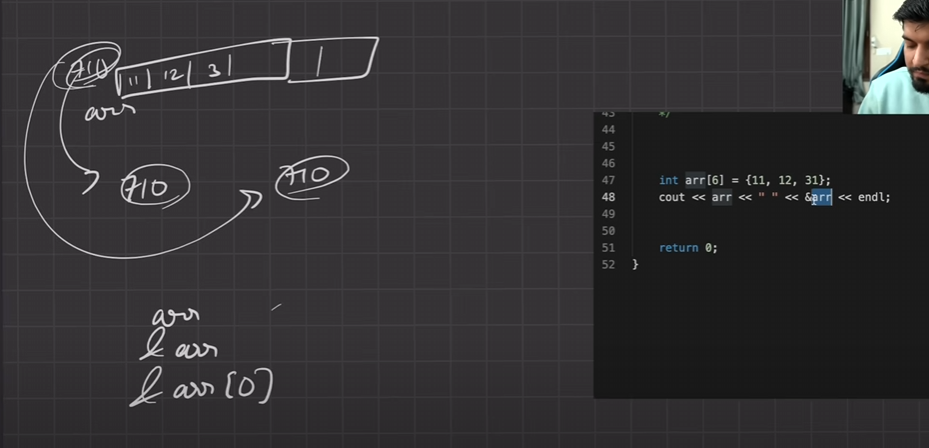 710
11 12 3
arr
710 710
arr
& arr
& arr[0]
43 */
44
45
46
47 int arr[6] = {11, 12, 31};
48 cout << arr << " " << &arr << endl;
49
50
51 return 0;
52 }